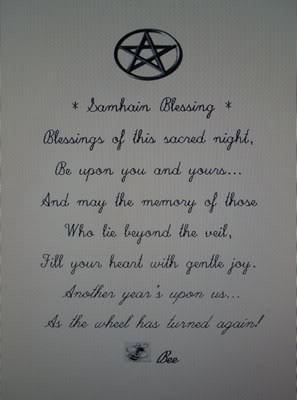 * Samhain Blessing *
Blessings of this sacred night,
Be upon you and yours...
And may the memory of those
Who lie beyond the veil,
Fill your heart with gentle joy.
Another year's upon us...
As the wheel has turned again!
Bee